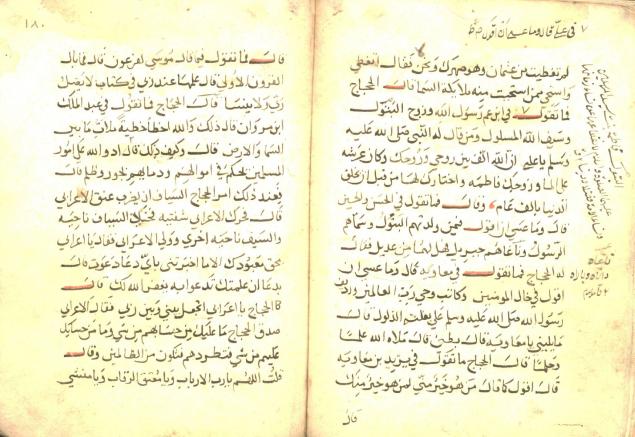 ٧ في علي قال وما عسى ان اقول
لم تغطيت من عثمان وهو صهرك وختنك فقال اتغطي
واستحي ممن استحيت منه ملايكة السما قال الحجاج
فما تقول في ابن عم رسول الله وزوج البتول
وسيف الله المسلول ومن قال له النبي صلى الله عليه
وسلم يا علي ان الله الف بين روحي وروحك وكان عرشه
على الما وزوجك فاطمه واختارك لها من قبل ان يخلق
الدنيا بالف عام وقال فما تقول في الحسن والحسين
قال وما عسى ان اقول فيمن ولدتهم البتول وسماهم
الرسول وناغاهم جبريل هل لهما من عديل فقال
له الحجاج فما تقول في معاويه قال وما عسى ان
اقول في خال المومنين وكاتب وحي رب العالمين ورديف
رسول الله صلى الله عليه وسلم على بغلته الدلول قال
ما يليني يا معاويه قال بطني قال ملاه الله علما
وحلما قال الحجاج ما تقول في يزيد بن معاويه
قال اقول كما قال من هو خير مني لمن هو خير منك
قال
١٨٠
قال فما تقول فيما قاله موسى لفرعون قال فما بال
القرون الاولى قال علمها عند ربي في كتاب لا يضل
ربي ولا ينسا قال الحجاج فما تقول في عبد الملك
ابن مروان قال ذلك والله اخطا خطية ملات ما بين
السما والارض قال وكيف ذلك قال ادو الله على امور
المسلمين تحكم في اموالهم ودمايهم بجور وظلم قال
فعند ذلك امر الحجاج السياف ان يضرب عنق الاعرابي
قال فحرك الاعرابي شفتيه فتحول السياف ناحيه
والسيف ناحيه اخرى وولى الاعرابي فقال يا اعرابي
بحق معبودك الا ما اخبرتني باي دعا دعوت قال
بدعا ان علمتك تدعوا به يغفر الله لك قال
الحجاج يا اعرابي اتجعل بيني وبين ربي فقال الاعرابي
صدق الحجاج ما عليك من حسابهم من شي وما من حسابك
عليهم من شي فتطردهم فتكون من الظالمين وقال
قلت اللهم يا رب الارباب ويا معتق الرقاب ويا منشي